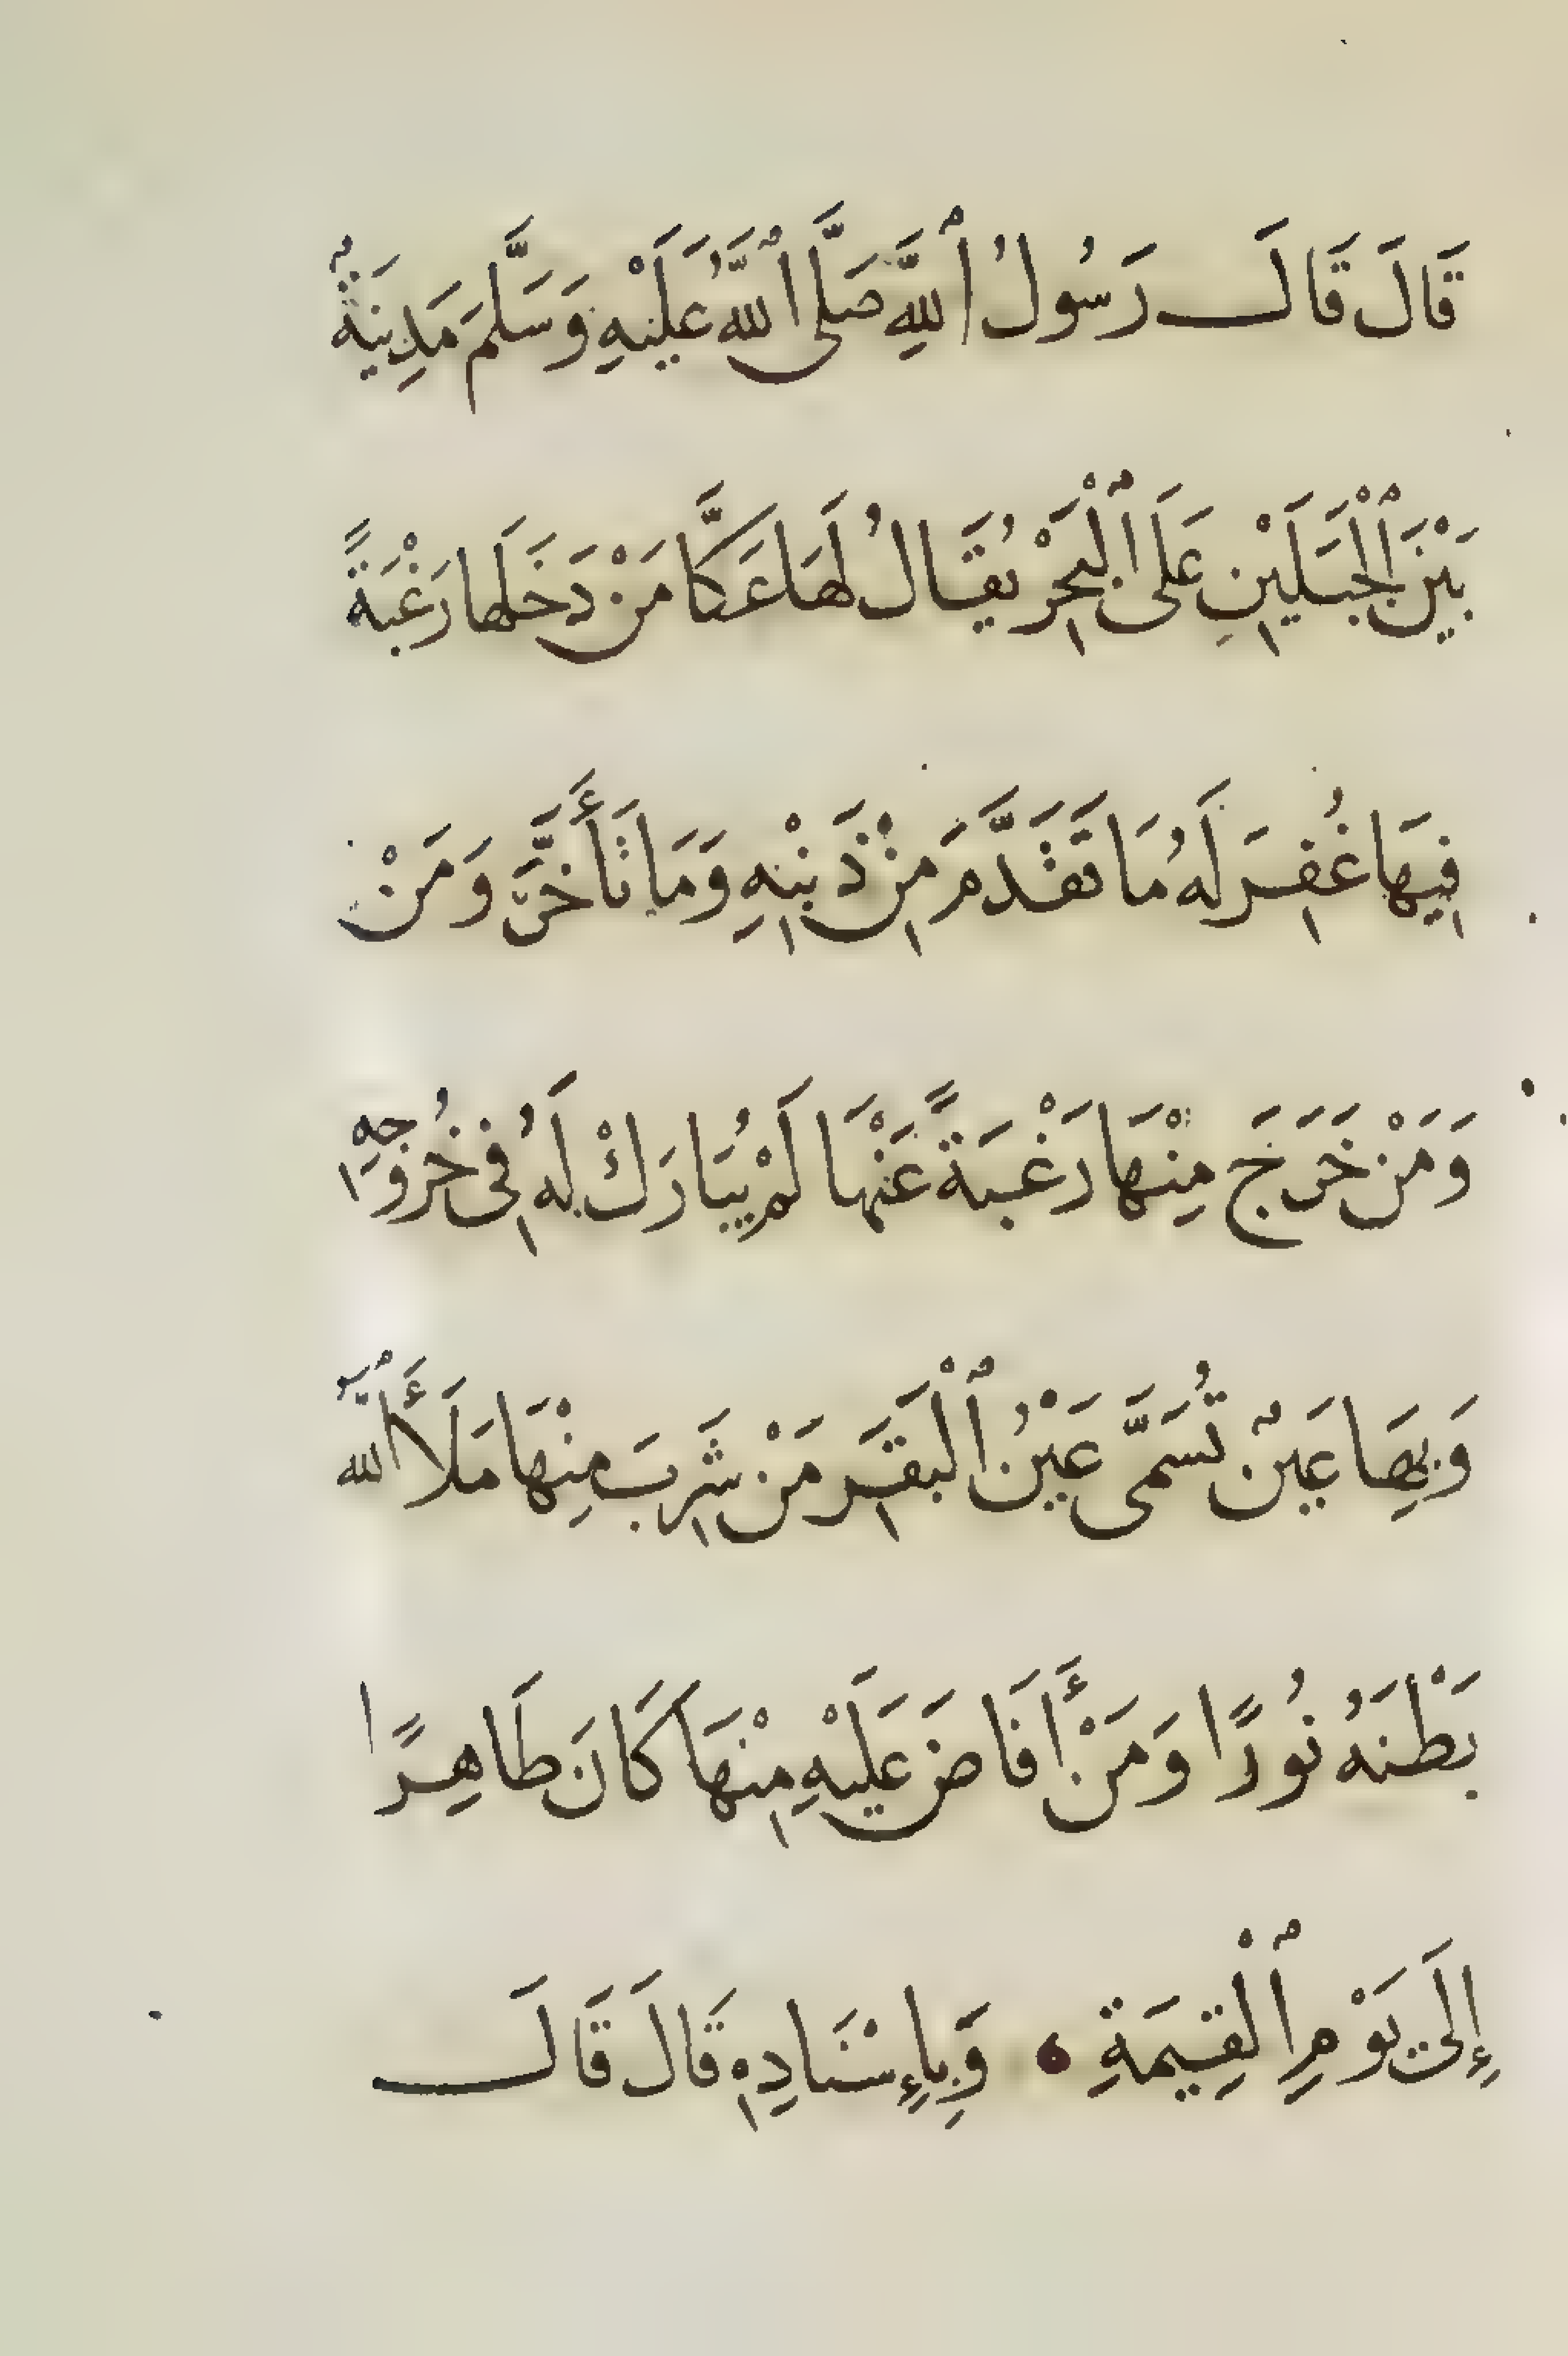 قَالَ قَالَ رَسُولُ ٱللَّهِ صَلَّى ٱللَّهُ عَلَيْهِ وَسَلَّمَ مَدِينَةٌ
بَيْنَ ٱلْجَبَلَيْنِ عَلَى ٱلْبَحْرِ يُقَالُ لَهَا عَكَّا مَنْ دَخَلَها رَغْبَةً
فِيهَا غُفِرَ لَهُ مَا تَقَدَّمَ مِنْ ذَنْبِهِ وَمَا تَأَخَّرَ وَمَنْ
وَمَنْ خَرَجَ مِنْهَا رَغْبَةً عَنْهَا لَمْ يُبَارَكْ لَهُ فِي خُرُوجِهِ
وَبِهَا عَيْنٌ تُسَمَّى عَيْنُ ٱلْبَقَرِ مَنْ شَرِبَ مِنْهَا مَلَأَ ٱللَّهُ
بَطْنَهُ نُورًا وَمَنْ أَفَاضَ عَلَيْهِ مِنْهَا كَانَ طَاهِرًا
إِلَى يَوْمِ ٱلْقِيٰمَةِ ٥ وَبِإِسْنَادِهِ قَالَ قَالَ